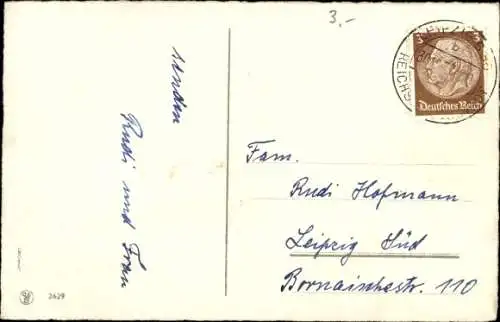 3,-
senden
Rudi und Frau
3
Deutsches Reich
Fam.
Rudi Hofmann
Leipzig Süd
Bornaischestr. 110
2629